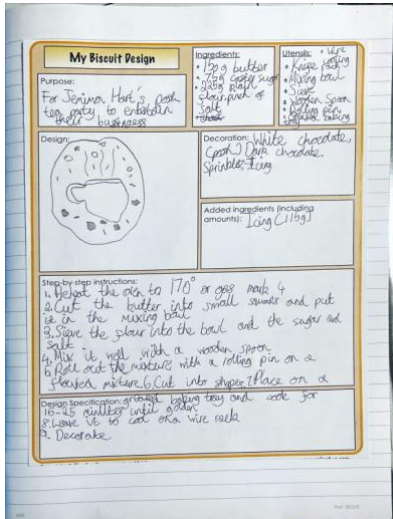 My Biscuit Design
Purpose:
For Jemima Hart's posh
tea party to entertain
their business
Ingredients:
• 150g butter
• 75g caster sugar
• 225g plain
flour, pinch of
salt
Utensils: • Wire
cooling
• Knife
• Mixing bowl
• Sieve
• Wooden Spoon
• Rolling pin
baking
Design:
Decoration: White chocolate,
(posh) Dark chocolate
Sprinkles, Icing
Added ingredients (including
amounts): Icing (115g)
Step-by-step instructions:
1. Preheat the oven to 170° or gas mark 4
2. Cut the butter into small squares and put
it in the mixing bowl
3. Sieve the flour into the bowl and the sugar and
salt
4. Mix it well with a wooden spoon
5. Roll out the mixture with a rolling pin on a
floured mixture. 6. Cut into shapes 7. Place on a
Design Specification: greased baking tray and cook for
until golden
8. Leave it to cool on a wire rack
9. Decorate